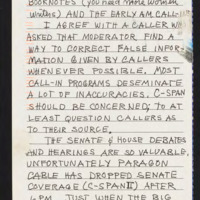 BOOKNOTES (YOU NEED MORE WOMEN
WRITERS) AND THE EARLY AM CALL-IN
I AGREE WITH A CALLER WHO
ASKED THAT MODERATOR FIND A
WAY TO CORRECT FALSE INFOR-
MATION GIVEN BY CALLERS
WHENEVER POSSIBLE. MOST
CALL-IN PROGRAMS DESEMINATE
A LOT OF INACCURACIES. C-SPAN
SHOULD BE CONCERNED TO AT
LEAST QUESTION CALLERS AS
TO THEIR SOURCE.
THE SENATE & HOUSE DEBATES
AND HEARINGS ARE SO VALUABLE.
UNFORTUNATELY PARAGON
CABLE HAS DROPPED SENATE
COVERAGE (C-SPAN II) AFTER
6 PM JUST WHEN THE BIG